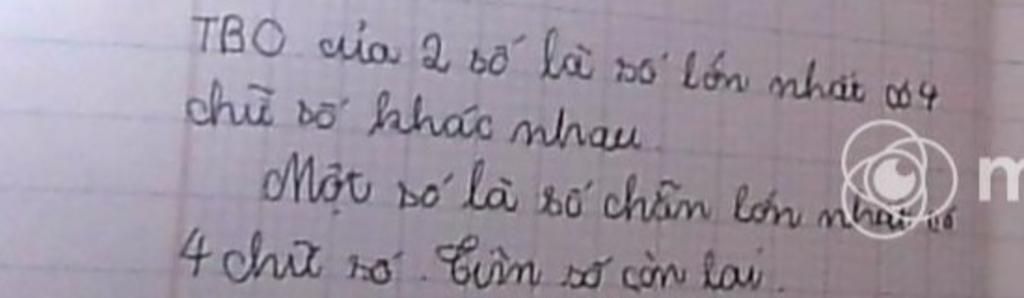 TBC của 2 số là số lớn nhất có 4
chữ số khác nhau.
Một số là số chẵn lớn nhất có
4 chữ số. Tìm số còn lại.
m